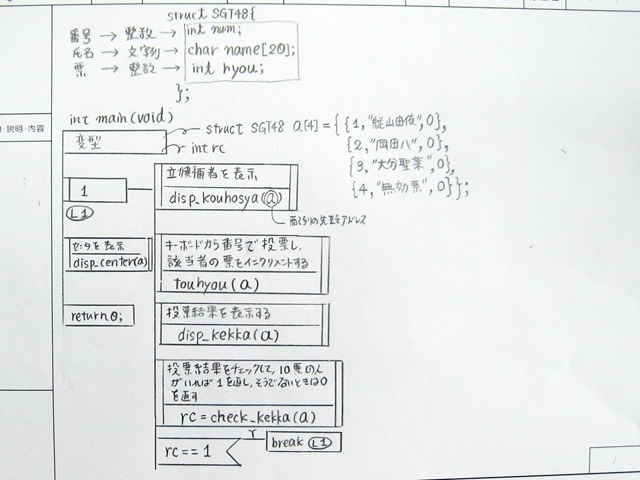 struct SGT48{
番号 → 整数 → int num;
氏名 → 文字列 → char name[20];
票 → 整数 → int hyou;
};
・説明・内容
int main(void)
変型
struct SGT48 a[4] = { {1," ",0},
{2,"岡田八",0},
{3,"大分聖菜",0},
{4,"無効票",0} };
int rc
1
L1
立候補者を表示
disp_kouhosya(a)
アドレス
センタを表示
disp_center(a)
キーボードから番号で投票し,
該当者の票をインクリメントする
touhyou(a)
return 0;
投票結果を表示する
disp_kekka(a)
投票結果をチェックして, 10票の人
がいれば1を返し, そうでないときは0
を返す
rc=check_kekka(a)
rc==1
Y
break L1